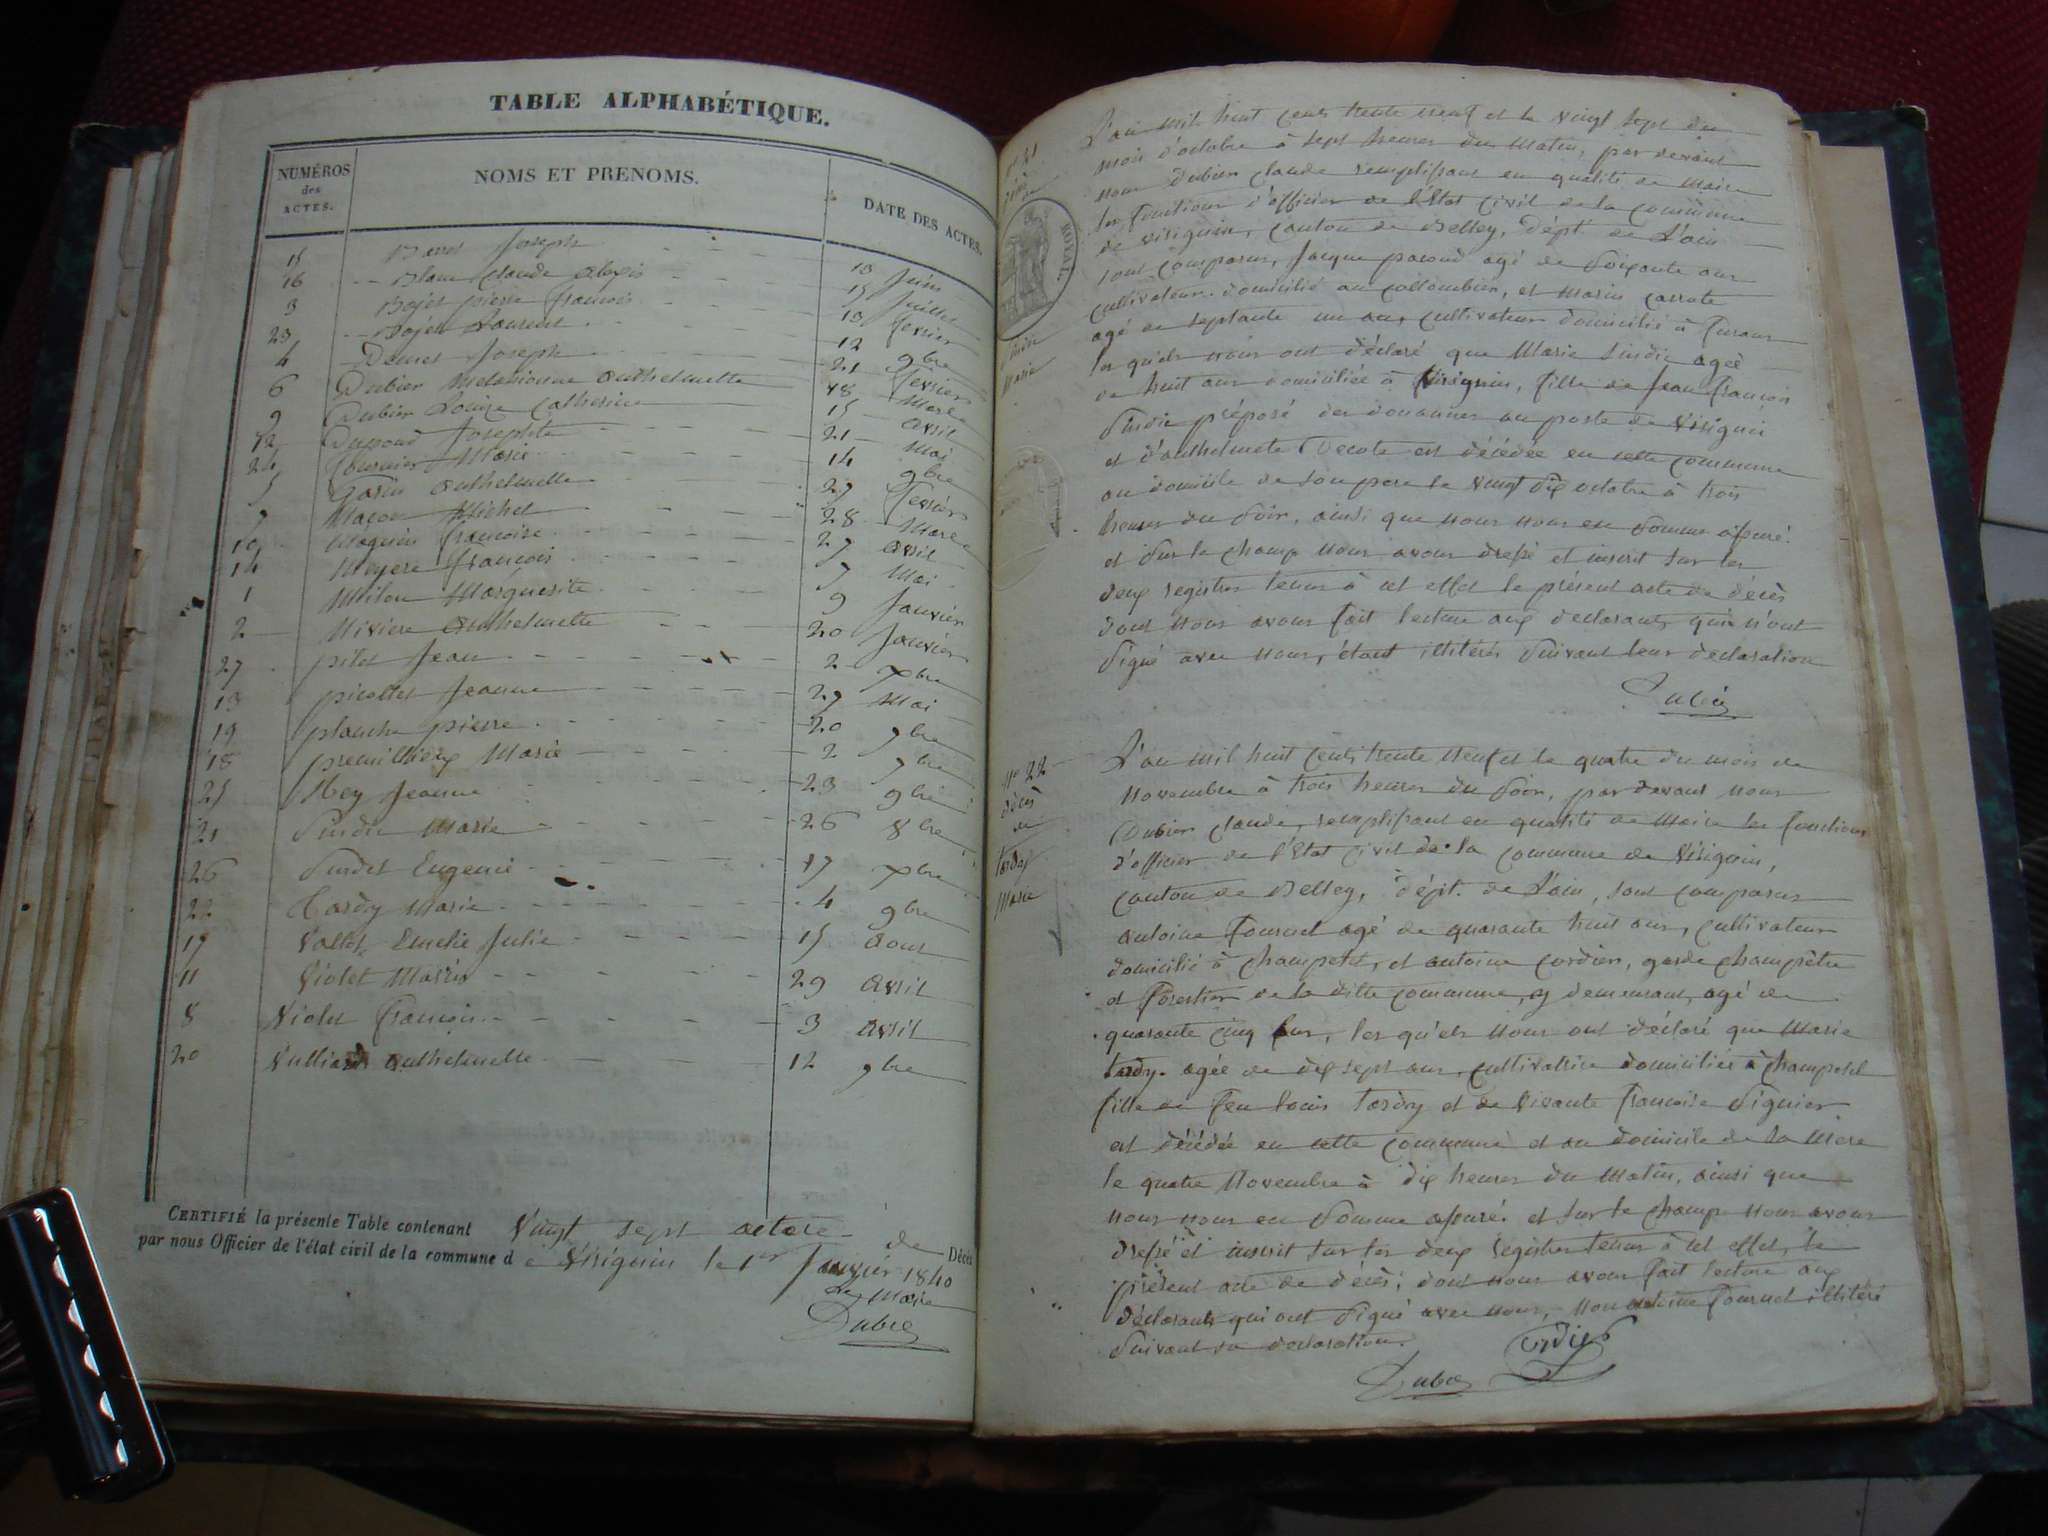 TABLE ALPHABÉTIQUE.
NUMÉROS des ACTES.
NOMS ET PRENOMS.
DATE DES ACTES.
15 Joseph 10 Juin
16 Blanc Claude 15 Juillet
3 Bojet pierre françois 10 fevrier
23 Bojet Laurent 12 9bre
4 Demet Joseph 21 fevrier
6 Dubier anthelmette 18 Mars
9 Dubier Louise Catherine 15 avril
12 Dupond Josephte 21 Mai
24 fournier Marie 14 9bre
5 Garin anthelmette 27 fevrier
7 Maçon Michel 28 Mars
10 Maguin françoise 27 avril
14 Meyere françois 7 Mai
1 Milon Marguerite 9 Janvier
2 Miviere anthelmette 20 Janvier
27 pitet Jean 2 xbre
13 picollet Jeanne 27 Mai
19 planche pierre 20 7bre
18 premillieux Marie 2 7bre
25 Rey Jeanne 23 9bre
21 Sindic Marie 26 8bre
26 Surdet Eugenie 17 xbre
22 Tardy Marie 4 9bre
17 Vallet Emelie Julie 15 aout
11 Violet Marin 29 avril
8 Violet françois 3 avril
20 Vulliard anthelmette 12 7bre
CERTIFIÉ la présente Table contenant Vingt sept actes de Décès
par nous Officier de l'état civil de la commune d e Virignin le 1er Janvier 1840
Le Maire
Dubie
ROYAL
Marie
L'an mil huit cents trente neuf et le vingt sept du
mois d'octobre à sept heures du matin, par devant
nous Dubier claude remplissant en qualité de Maire
les fonctions d'officier de l'état civil de la commune
de virignin, canton de Belley, dépt de L'ain
sont comparus, Jacque pacoud agé de soixante ans
cultivateur domicilié au collombier, et Marin carrute
agé de septante un an, cultivateur domicilié à
les quels nous ont déclaré que Marie Sindic ageè
de huit ans domiciliée à Virignin, fille de Jean françois
Sindic préposé des douannes au poste de Virignin
et d'anthelmete Decote est décédée en cette commune
au domicile de son pere le vingt six octobre à trois
heures du soir, ainsi que nous nous en somme assuré.
et sur le champ nous avons dressé et inscrit sur les
deux registres tenus à cet effet le présent acte de décès
dont nous avons fait lecture aux declarants qui n'ont
signé avec nous, étant illitérés suivant leur declaration
Dubie
No 22
décès
de
tardy
Marie
L'an mil huit cents trente neuf et le quatre du mois de
Novembre à trois heures du soir, par devant nous
Dubier claude, remplissant en qualité de Maire les fonctions
d'officier de l'état civil de la commune de Virignin,
canton de Belley, dépt. de L'ain, sont comparus
antoine fournet agé de quarante huit ans, cultivateur
domicilié à champetel, et antoine cordier, garde champètre
et forestier de la ditte commune, y demeurant, agé de
quarante cinq ans, les qu'els nous ont déclaré que Marie
tardy. agée de dix sept ans, cultivatrice domiciliée à champetel
fille de feu Louis tardy et de vivante françoise Siguier
est décédée en cette commune et au domicile de sa Mere
le quatre Novembre à dix heures du matin, ainsi que
nous nous en somme assuré. et sur le champ nous avons
dressé et inscrit sur les deux registres tenus à cet effet, le
présent acte de décès; dont nous avons fait lecture aux
déclarants qui ont signé avec nous, non antoine fournet illitéré
suivant sa declaration.
Dubie Cordier